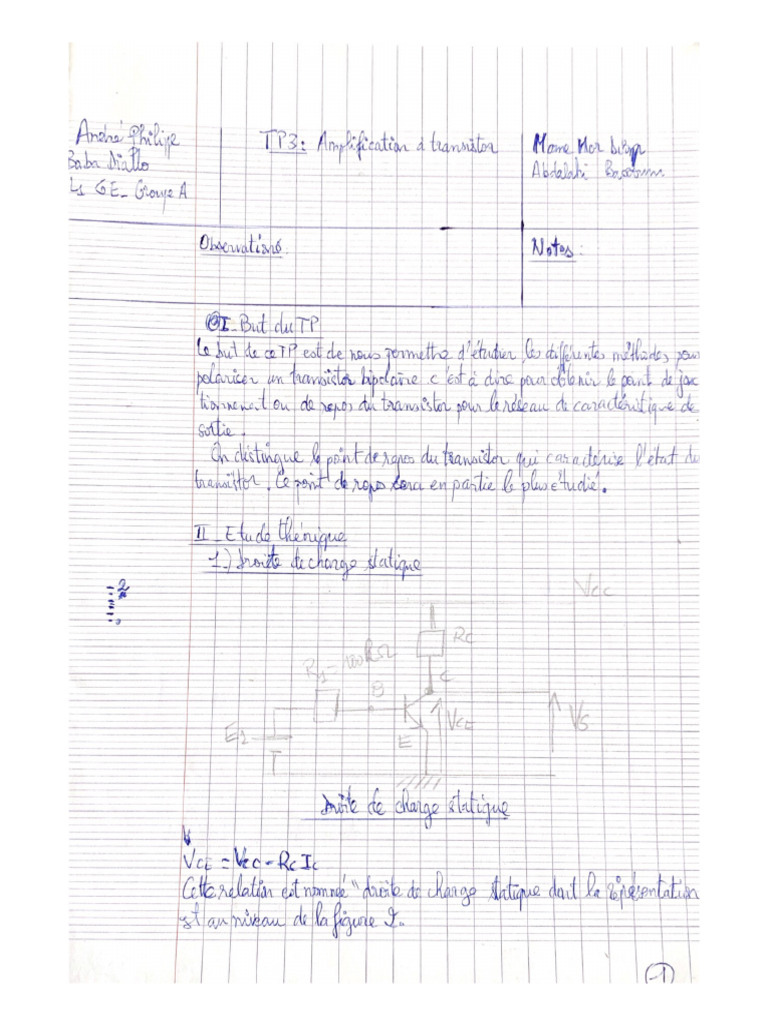 André Philippe
Baba Diallo
L1 GE_ Groupe A
TP3: Amplification à transistor
Mame Mor
Abdalahi
Observations
Notes:
I_But du TP
Le but de ce TP est de nous permettre d'étudier les différentes méthodes pour
polariser un transistor bipolaire c'est à dire pour obtenir le point de fonc
tionnement ou de repos du transistor pour le réseau de caractéristique de
sortie.
On distingue le point de repos du transistor qui caractérise l'état du
transistor. Ce point de repos sera en partie le plus étudié.
II_Etude théorique
1.) Droite de charge statique
Vcc
Rc
R1=100kΩ
C
B
VCE
VS
E
E1
Droite de charge statique
VCE = VCC - RC IC
Cette relation est nommée "droite de charge statique dont la représentation
est au niveau de la figure I.
1